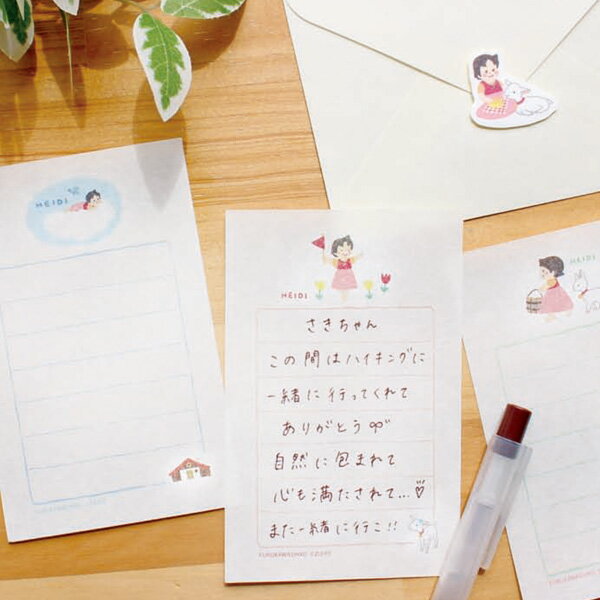 HEIDI
HEIDI
さきちゃん
この間はハイキングに
一緒に行ってくれて
ありがとう
自然に包まれて
心も満たされて…♡
また一緒に行こ!!
HEIDI